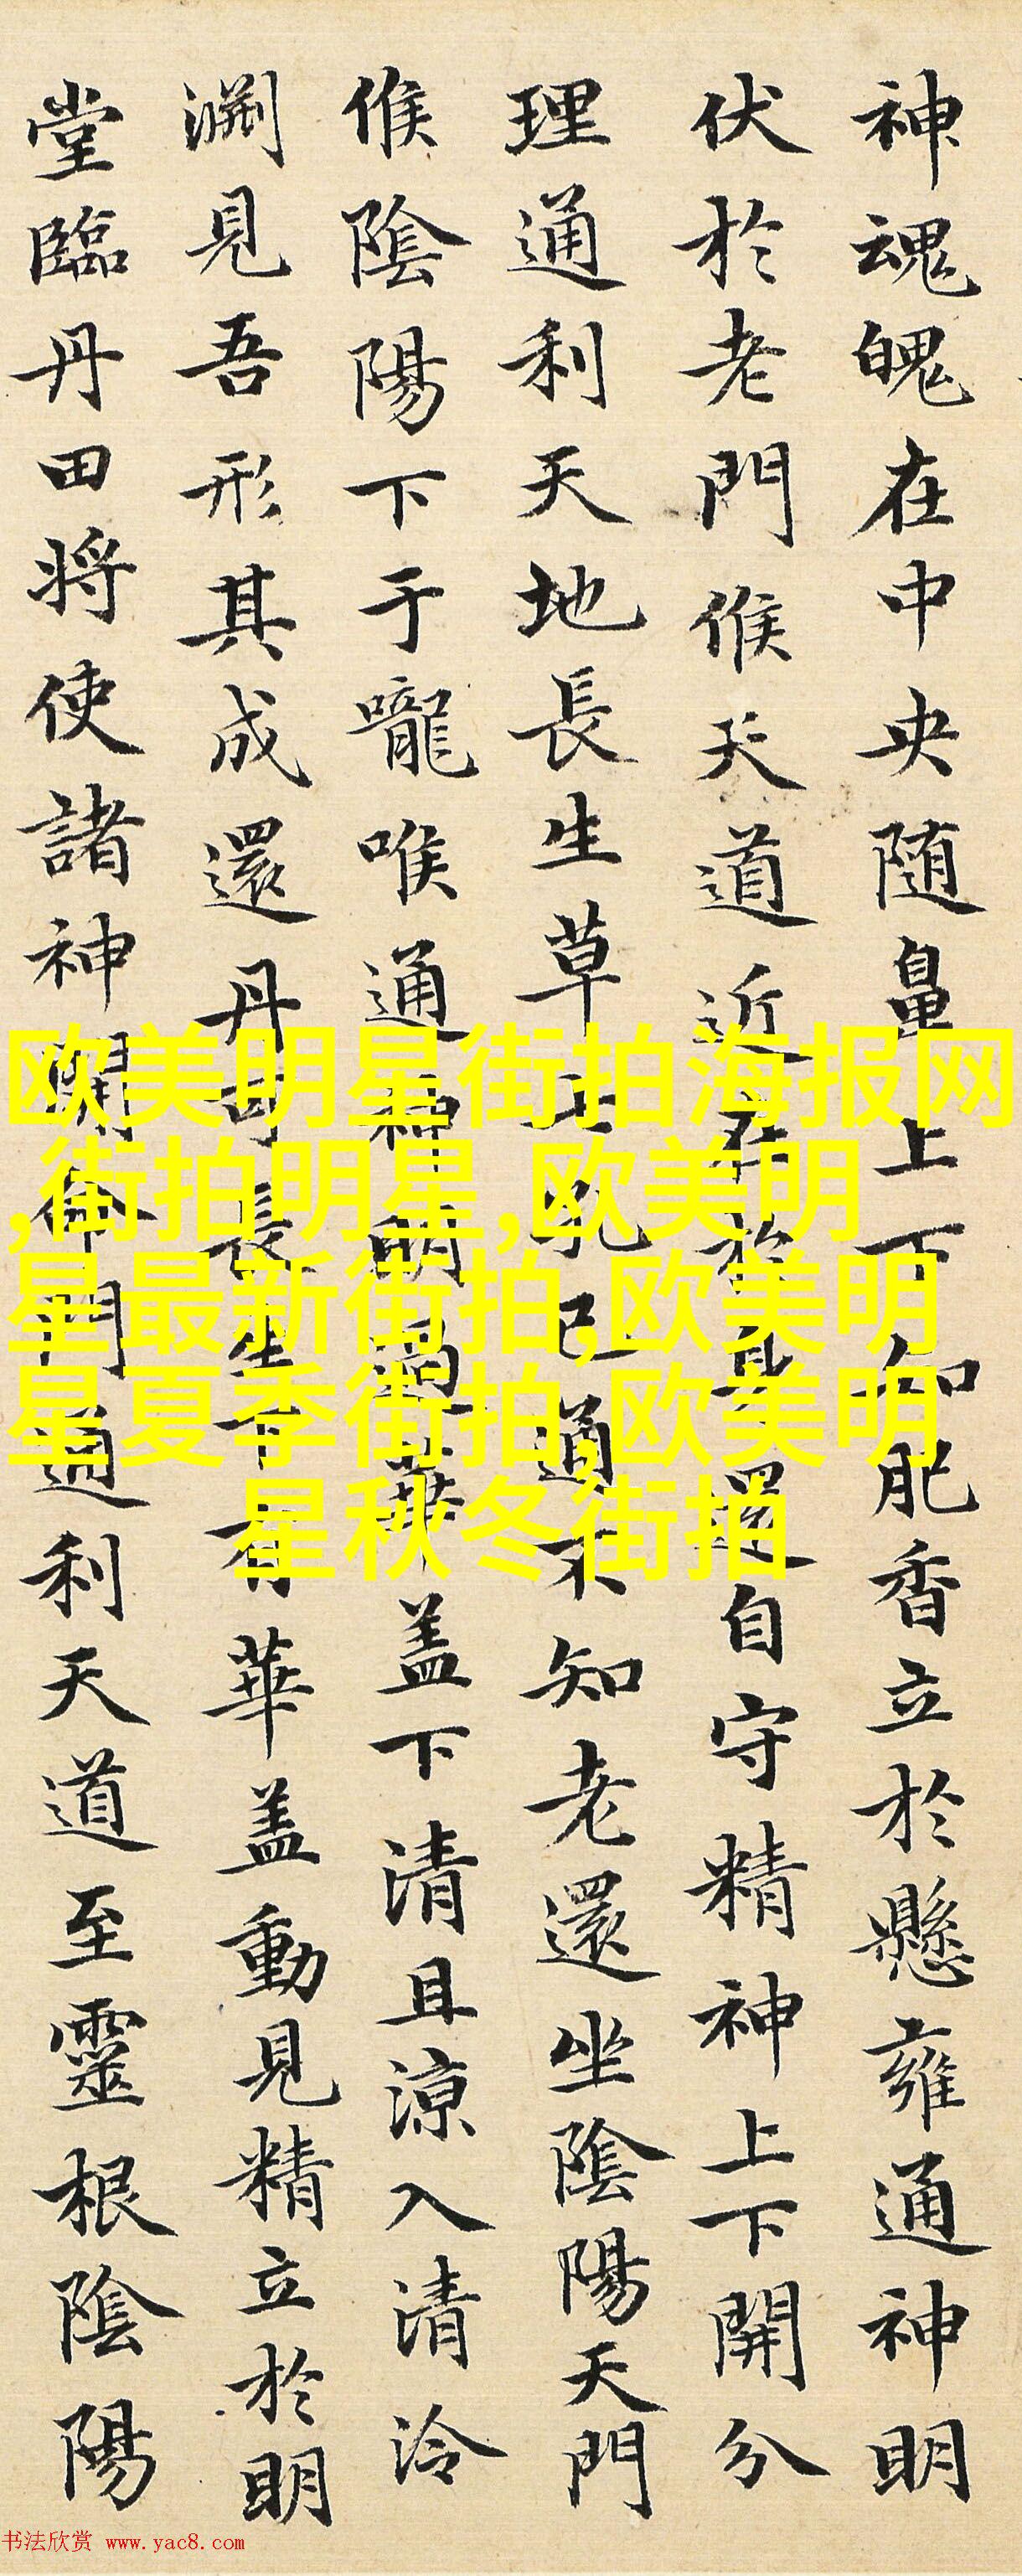 神魂魄在中央随鼻上下知肥香立於懸雍通神明
伏於老門候天道近在於身還自守精神上下開分
理通利天地長生草七孔已通不知老還坐陰陽天門
候陰陽下于嚨喉通神明過華盖下清且涼入清泠
渊見吾形其成還丹可長生下有華盖動見精立於明
堂臨丹田将使諸神開命門通利天道至靈根陰陽
欧美明星街拍海报网
,街拍明星,欧美明
星最新街拍,欧美明
星夏季街拍,欧美明
星秋冬街拍
书法欣赏 www.yac8.com